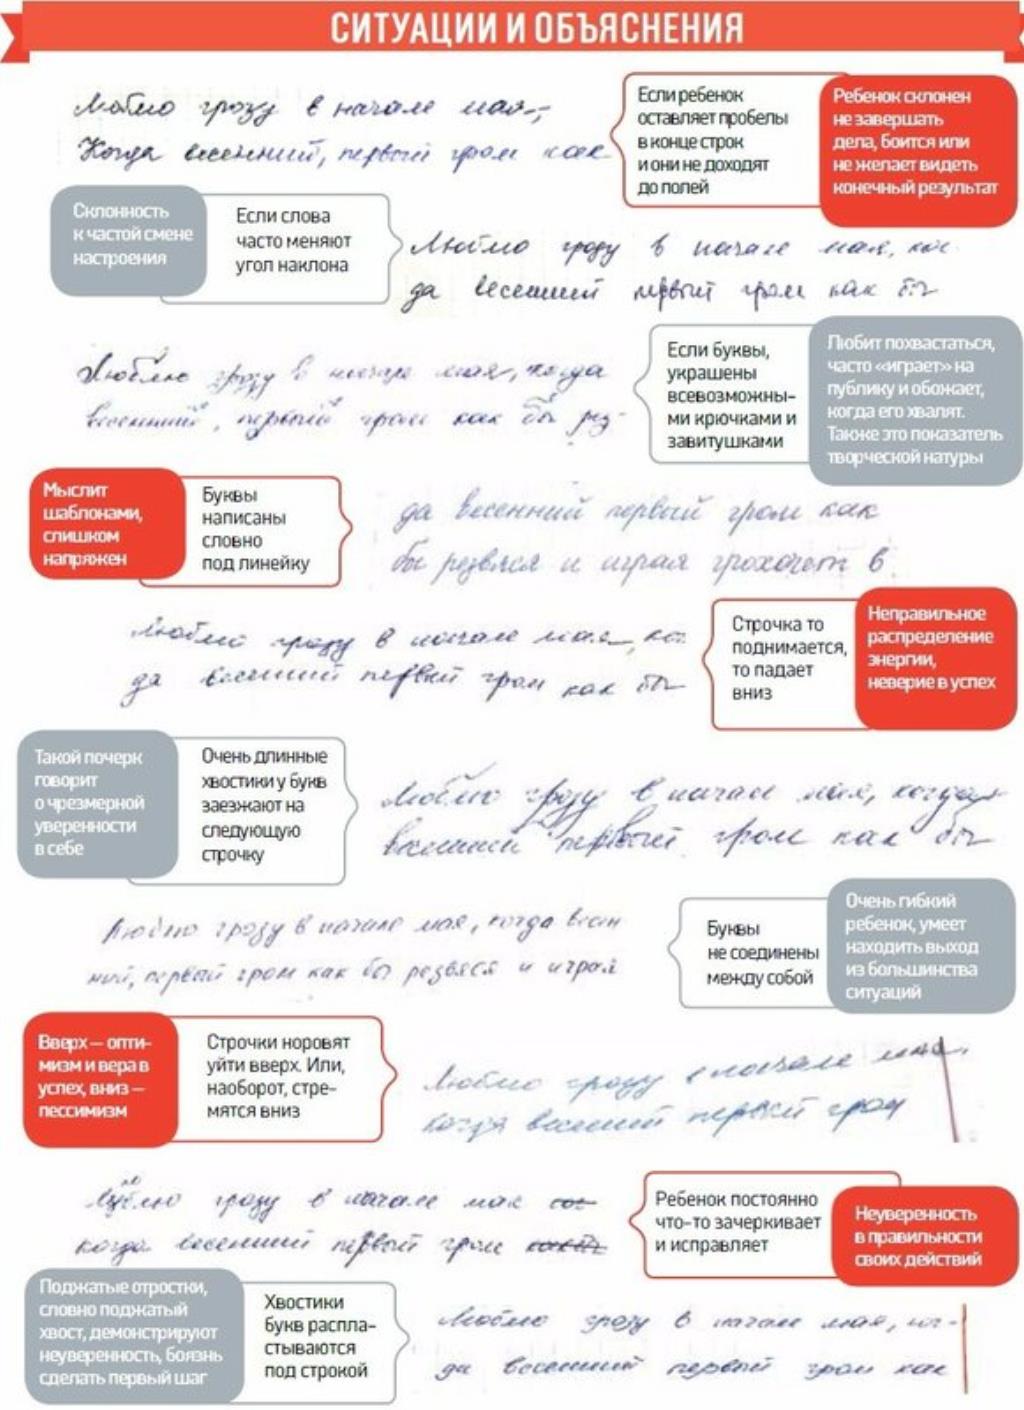 СИТУАЦИИ И ОБЪЯСНЕНИЯ
Люблю грозу в начале мая,
Когда весенний, первый гром как
Если ребенок
оставляет пробелы
в конце строк
и они не доходят
до полей
Ребенок склонен
не завершать
дела, боится или
не желает видеть
конечный результат
Склонность
к частой смене
настроения
Если слова
часто меняют
угол наклона
Люблю грозу в начале мая, ког-
да весенний первый гром как бы
Люблю грозу в начале мая, когда
весенний, первый гром как бы рез-
Если буквы,
украшены
всевозможны-
ми крючками и
завитушками
Любит похвастаться,
часто «играет» на
публику и обожает,
когда его хвалят.
Также это показатель
творческой натуры
Мыслит
шаблонами,
слишком
напряжен
Буквы
написаны
словно
под линейку
да весенний первый гром как
бы резвяся и играя грохочет в
Люблю грозу в начале мая, ког-
да весенний первый гром как бы
Строчка то
поднимается,
то падает
вниз
Неправильное
распределение
энергии,
неверие в успех
Такой почерк
говорит
о чрезмерной
уверенности
в себе
Очень длинные
хвостики у букв
заезжают на
следующую
строчку
Люблю грозу в начале мая, когда
весенний первый гром как бы
Люблю грозу в начале мая, когда весен
ний, первый гром как бы резвяся и играя
Буквы
не соединены
между собой
Очень гибкий
ребенок, умеет
находить выход
из большинства
ситуаций
Вверх — опти-
мизм и вера в
успех, вниз —
пессимизм
Строчки норовят
уйти вверх. Или,
наоборот, стре-
мятся вниз
Люблю грозу в начале мая,
когда весенний первый гром
Люблю грозу в начале мая
когда весенний первый гром
Ребенок постоянно
что-то зачеркивает
и исправляет
Неуверенность
в правильности
своих действий
Поджатые отростки,
словно поджатый
хвост, демонстрируют
неуверенность, боязнь
сделать первый шаг
Хвостики
букв распла-
стываются
под строкой
Люблю грозу в начале мая, ког-
да весенний первый гром как